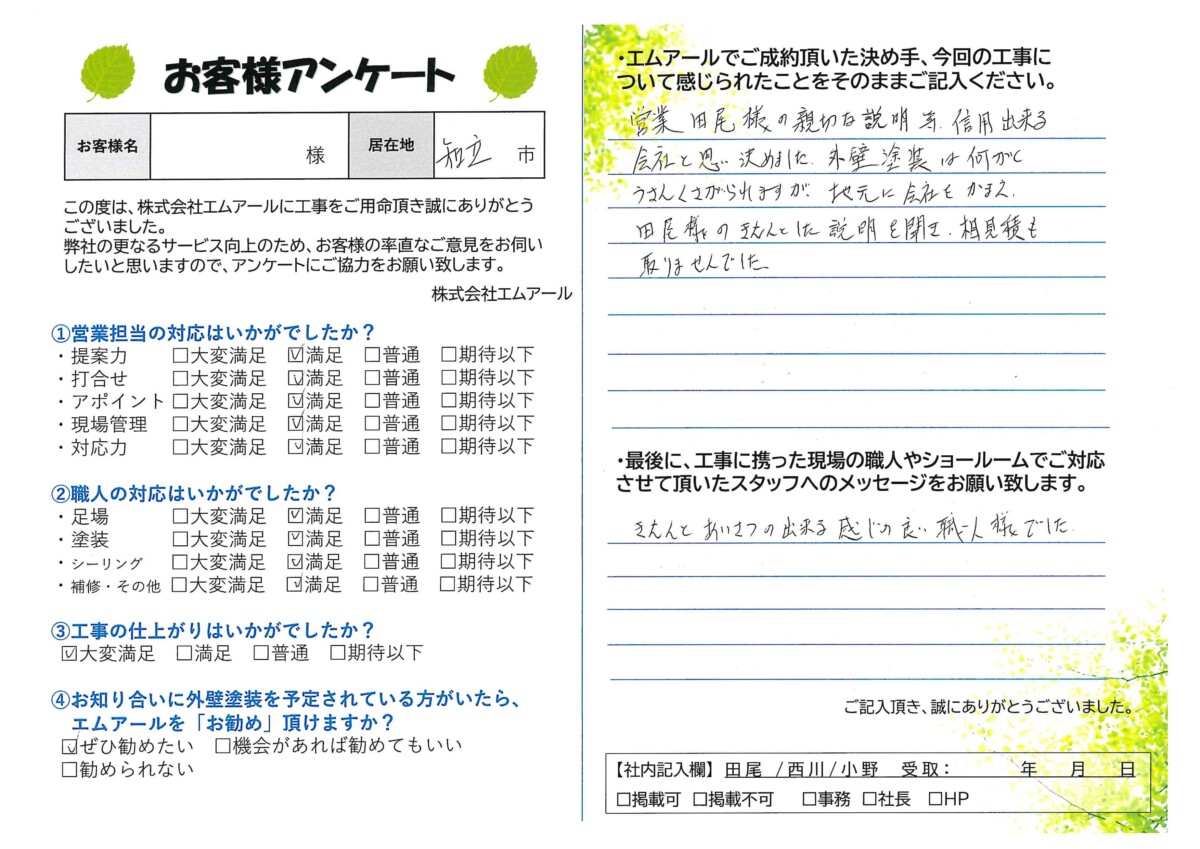 お客様アンケート
お客様名 様 居在地 知立 市
この度は、株式会社エムアールに工事をご用命頂き誠にありがとう
ございました。
弊社の更なるサービス向上のため、お客様の率直なご意見をお伺い
したいと思いますので、アンケートにご協力をお願い致します。
株式会社エムアール
①営業担当の対応はいかがでしたか？
・提案力 □大変満足 ☑満足 □普通 □期待以下
・打合せ □大変満足 ☑満足 □普通 □期待以下
・アポイント □大変満足 ☑満足 □普通 □期待以下
・現場管理 □大変満足 ☑満足 □普通 □期待以下
・対応力 □大変満足 ☑満足 □普通 □期待以下
②職人の対応はいかがでしたか？
・足場 □大変満足 ☑満足 □普通 □期待以下
・塗装 □大変満足 ☑満足 □普通 □期待以下
・シーリング □大変満足 ☑満足 □普通 □期待以下
・補修・その他 □大変満足 ☑満足 □普通 □期待以下
③工事の仕上がりはいかがでしたか？
☑大変満足 □満足 □普通 □期待以下
④お知り合いに外壁塗装を予定されている方がいたら、
エムアールを「お勧め」頂けますか？
☑ぜひ勧めたい □機会があれば勧めてもいい
□勧められない
・エムアールでご成約頂いた決め手、今回の工事に
ついて感じられたことをそのままご記入ください。
営業 田尾様の親切な説明等、信用出来る
会社と思い決めました。外壁塗装は何かと
うさんくさがられますが、地元に会社をかまえ、
田尾様のきちんとした説明を聞き、相見積も
取りませんでした。
・最後に、工事に携った現場の職人やショールームでご対応
させて頂いたスタッフへのメッセージをお願い致します。
きちんとあいさつの出来る感じの良い職人様でした。
ご記入頂き、誠にありがとうございました。
【社内記入欄】 田尾 /西川/小野 受取： 年 月 日
□掲載可 □掲載不可 □事務 □社長 □HP